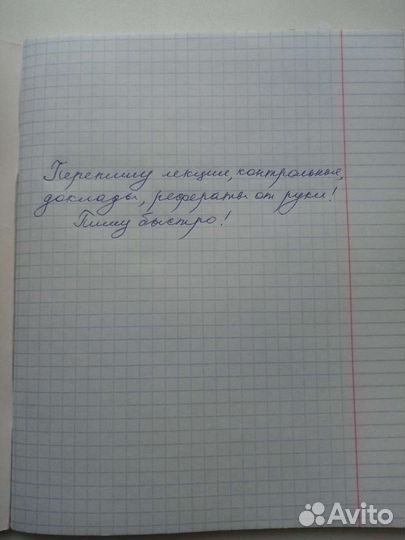 Перепишу лекции, контрольные,
доклады, рефераты от руки!
Пишу быстро!
Avito